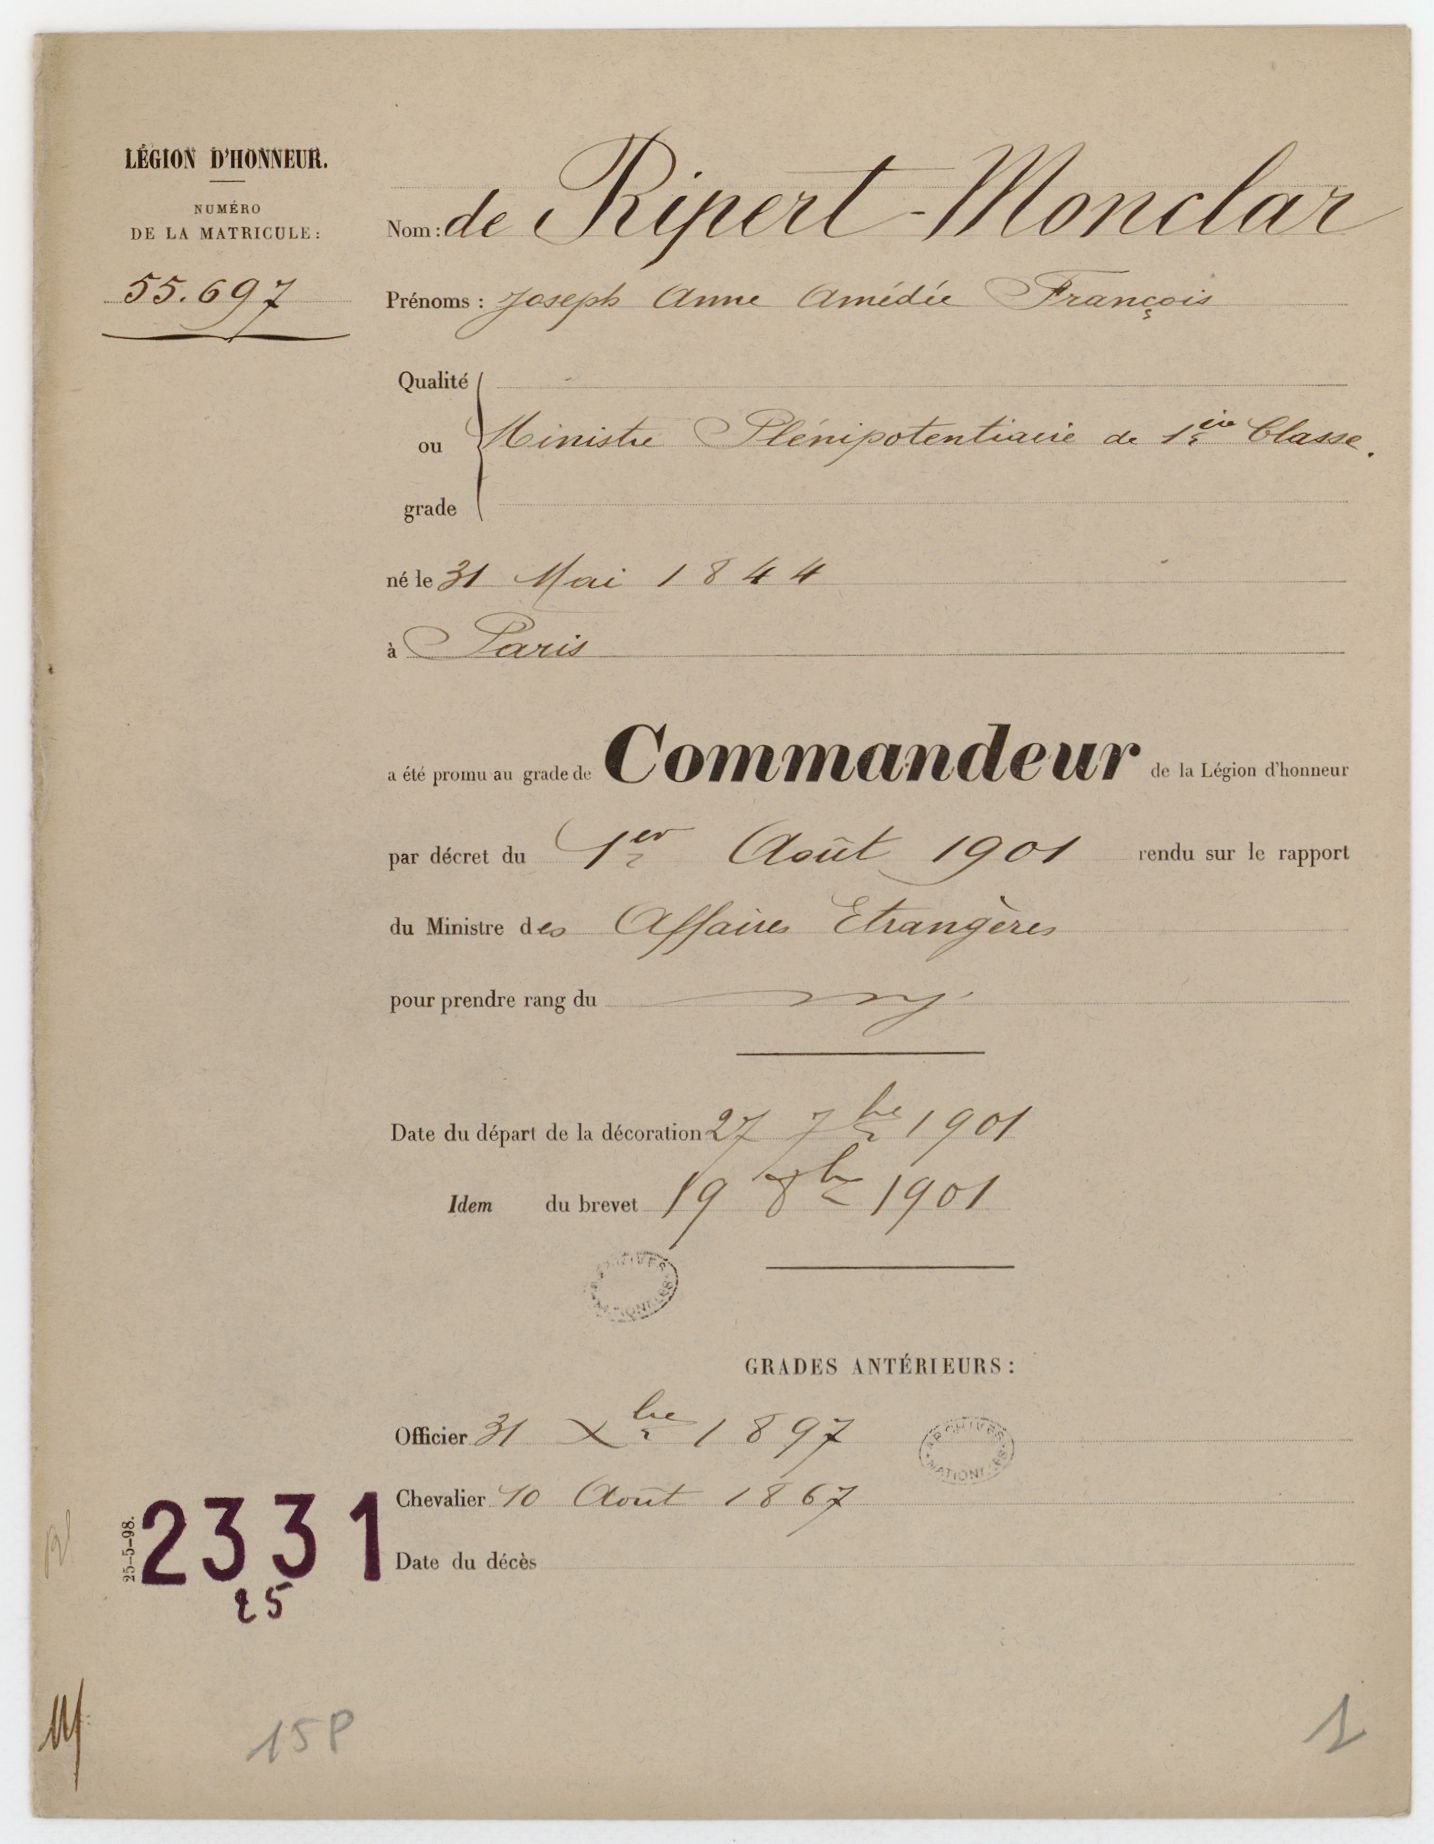 LÉGION D'HONNEUR.
NUMÉRO
DE LA MATRICULE:
55.697
Nom: de Ripert-Monclar
Prénoms: Joseph Anne Amédée François
Qualité
ou
grade
Ministre Plénipotentiaire de 1ère Classe.
né le 31 Mai 1844
à Paris
a été promu au grade de Commandeur de la Légion d'honneur
par décret du 1er Août 1901 rendu sur le rapport
du Ministre des Affaires Etrangères
pour prendre rang du
Date du départ de la décoration 27 7bre 1901
Idem du brevet 19 8bre 1901
ARCHIVES NATIONALES
GRADES ANTÉRIEURS:
Officier 31 Xbre 1897
ARCHIVES NATIONALES
Chevalier 10 Août 1867
Date du décès
25-5-98.
2331
25
15P
1